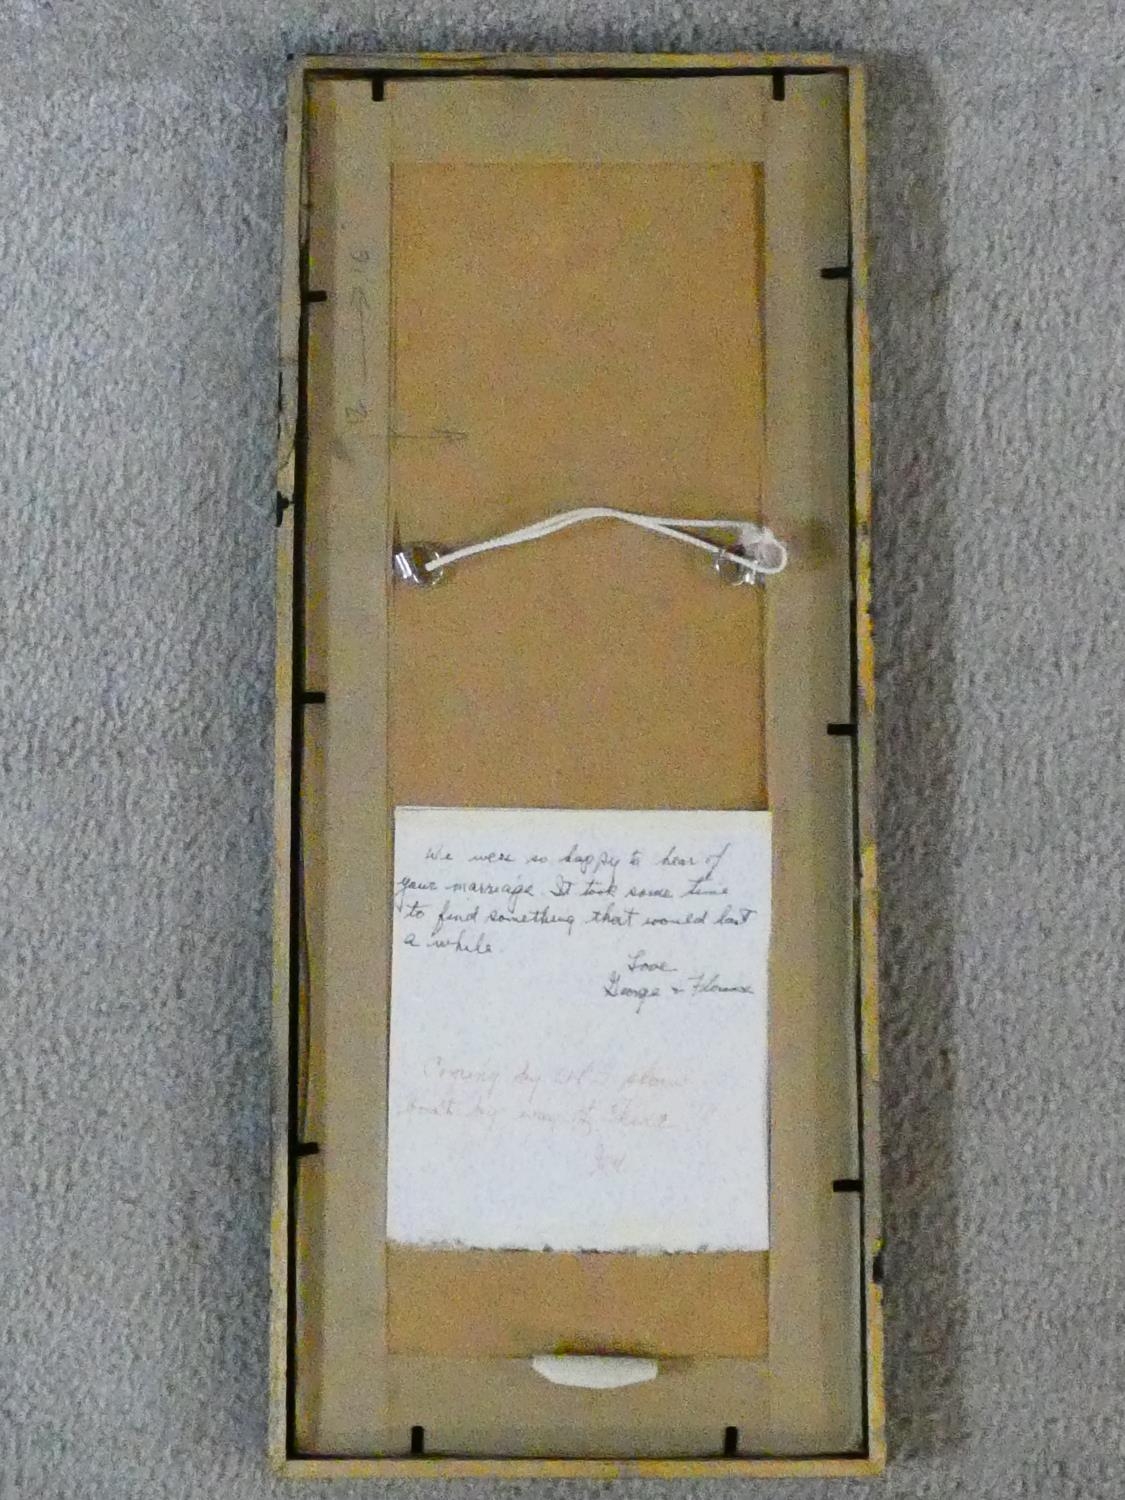 16
12
We were so happy to hear of
your marriage. It took some time
to find something that would last
a while.
Love
George & Florence
Coming by slow
boat by way of China